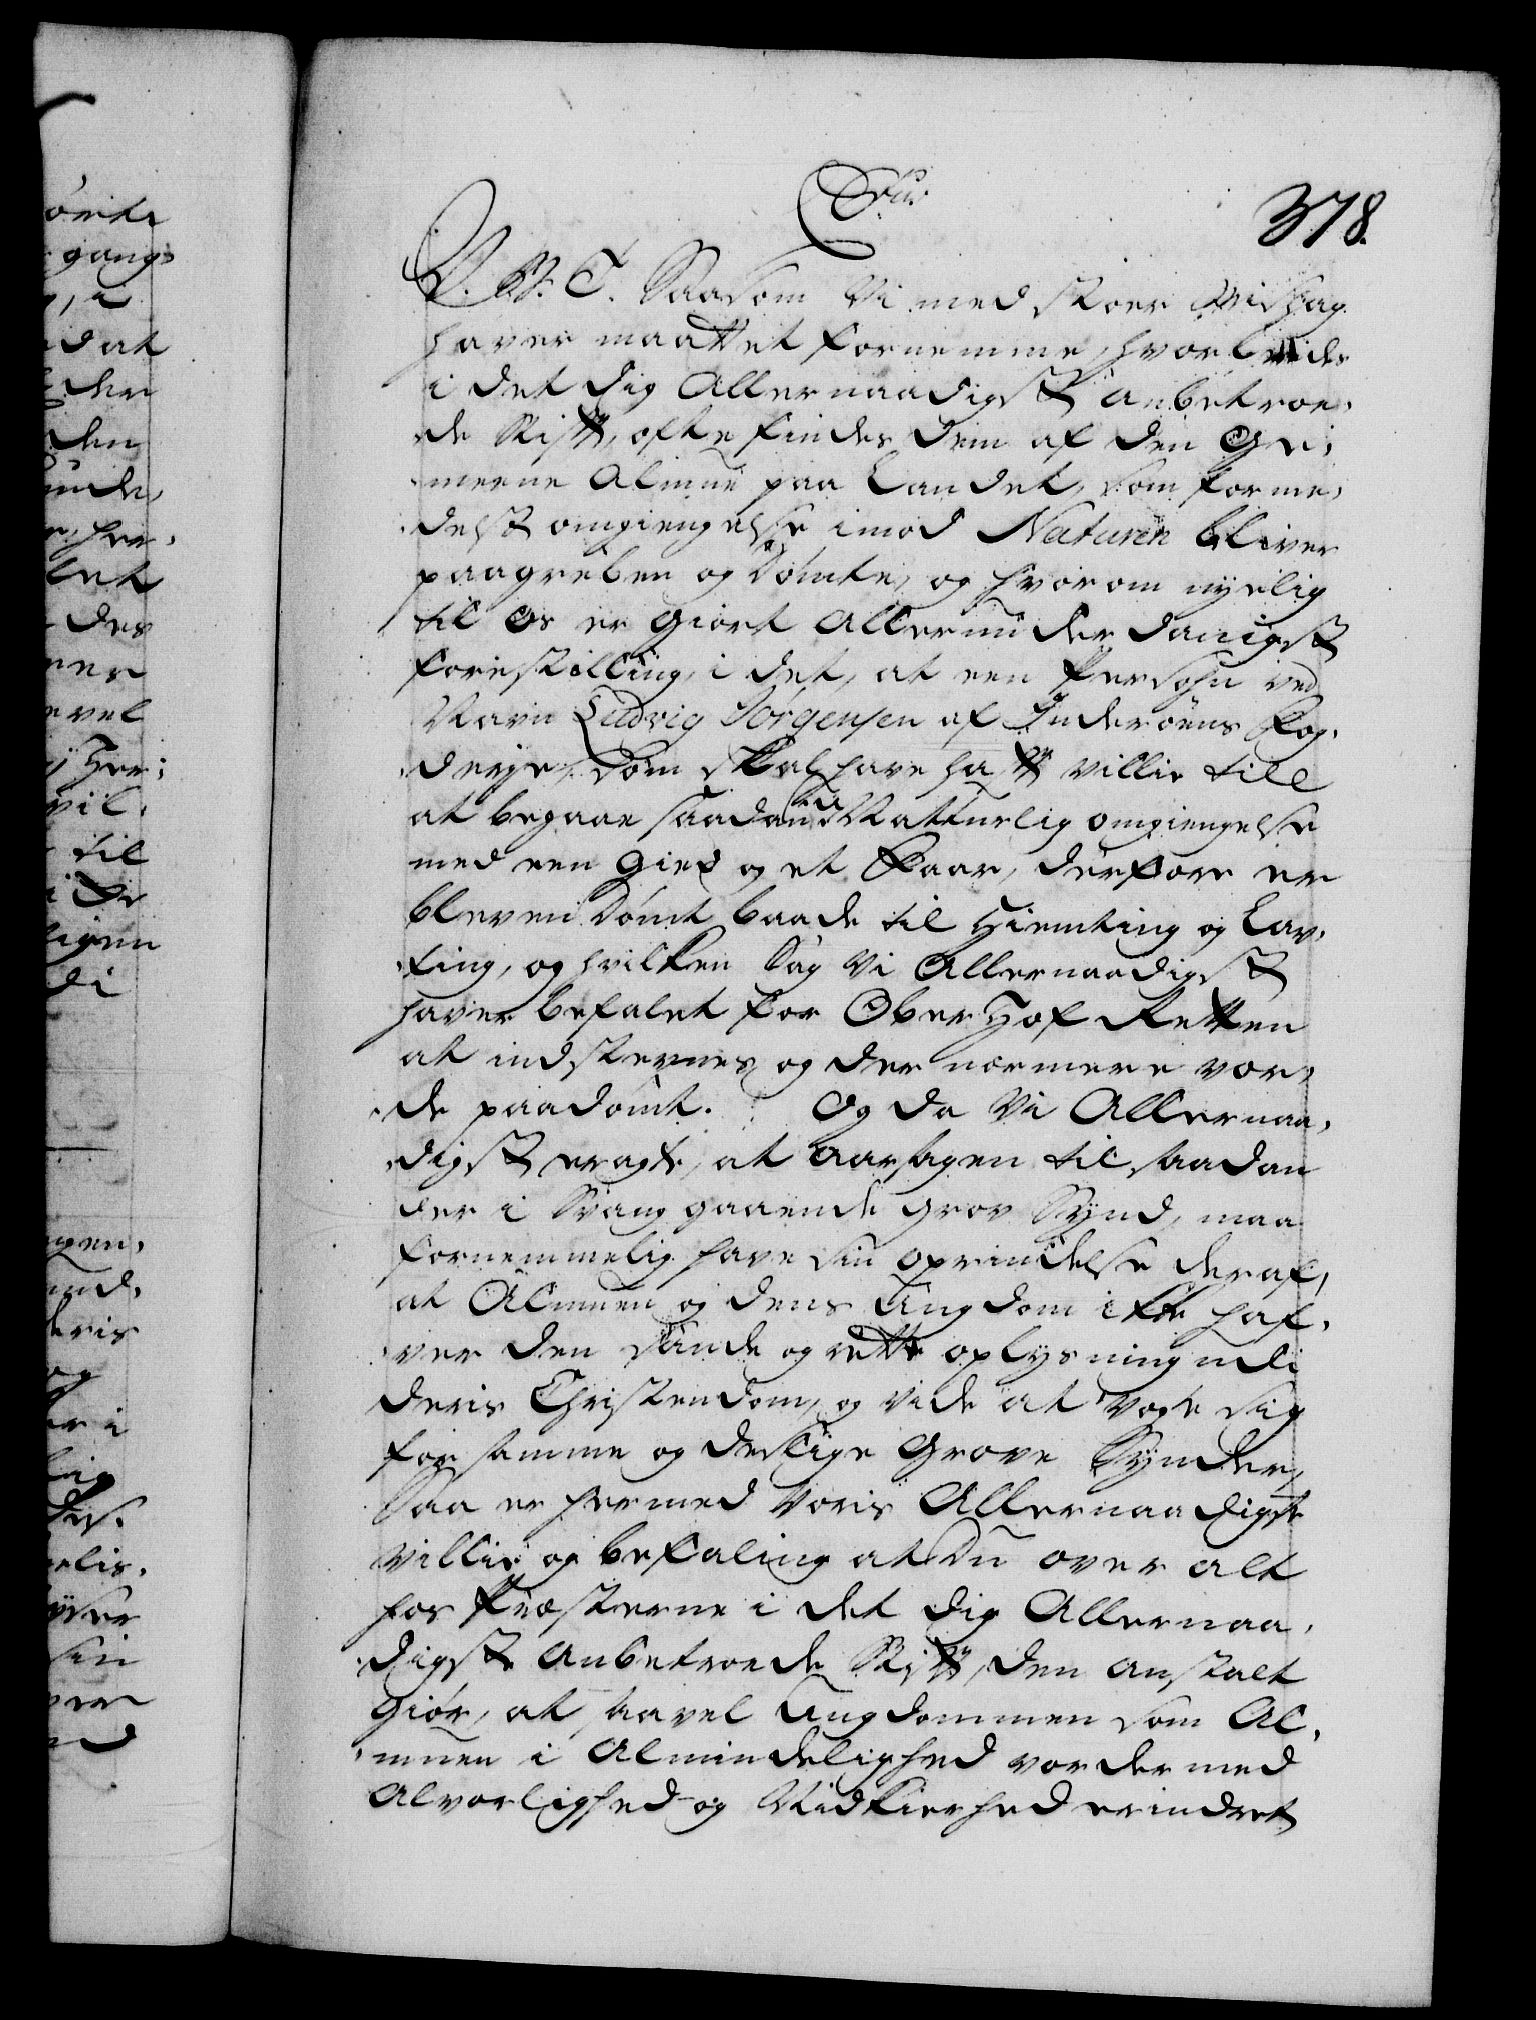 378.
V. G. T. Saasom Vi med stoer Mishag
haver maattet fornemme, hvorledes
i det dig Allernaadigst anbetroe,
de Stift, ofte findes dem af den Ge,
meene Almue paa Landet, som forme,
delst omgiengelse imod Naturen bliver
paagreben og dömte, og hvorom nyelig
til Os er giort Allerunderdanigst
forestilling, i det, at een Persohn ved
Navn Ludvig Jörgensen af Inderöens Fog,
derje, som skal have haft villie till
at begaae saadan u-Naturlig omgiengelse
med een gied og et Faar, derfore er
bleven dömt baade til Hiemting og Lav,
ting, og hvilken Sag Vi Allernaadigst
haver befalet for Ober Hof Retten
at indstevnes og der nærmere vor,
de paadömt. Og da Vi Allernaa,
digst eragte, at aarsagen til saadan
der i Svang gaaende grov Synd, maa
fornemmelig have sin oprindelse deraf,
at Almuen og dens Ungdom icke haf,
ver den sande og rette oplysning udi
deris Christendom, og vide at vogte sig
for samme og deslige Grove Synder,
Saa er hermed Voris Allernaadigste
villie og befaling at Du over alt
hos Præsterne i det dig Allernaa,
digst Anbetroede Stift, den anstalt
giör, at saavel Ungdommen som Al,
muen i Almindelighed vorder med
Alvorlighed og Nidkierhed erindret